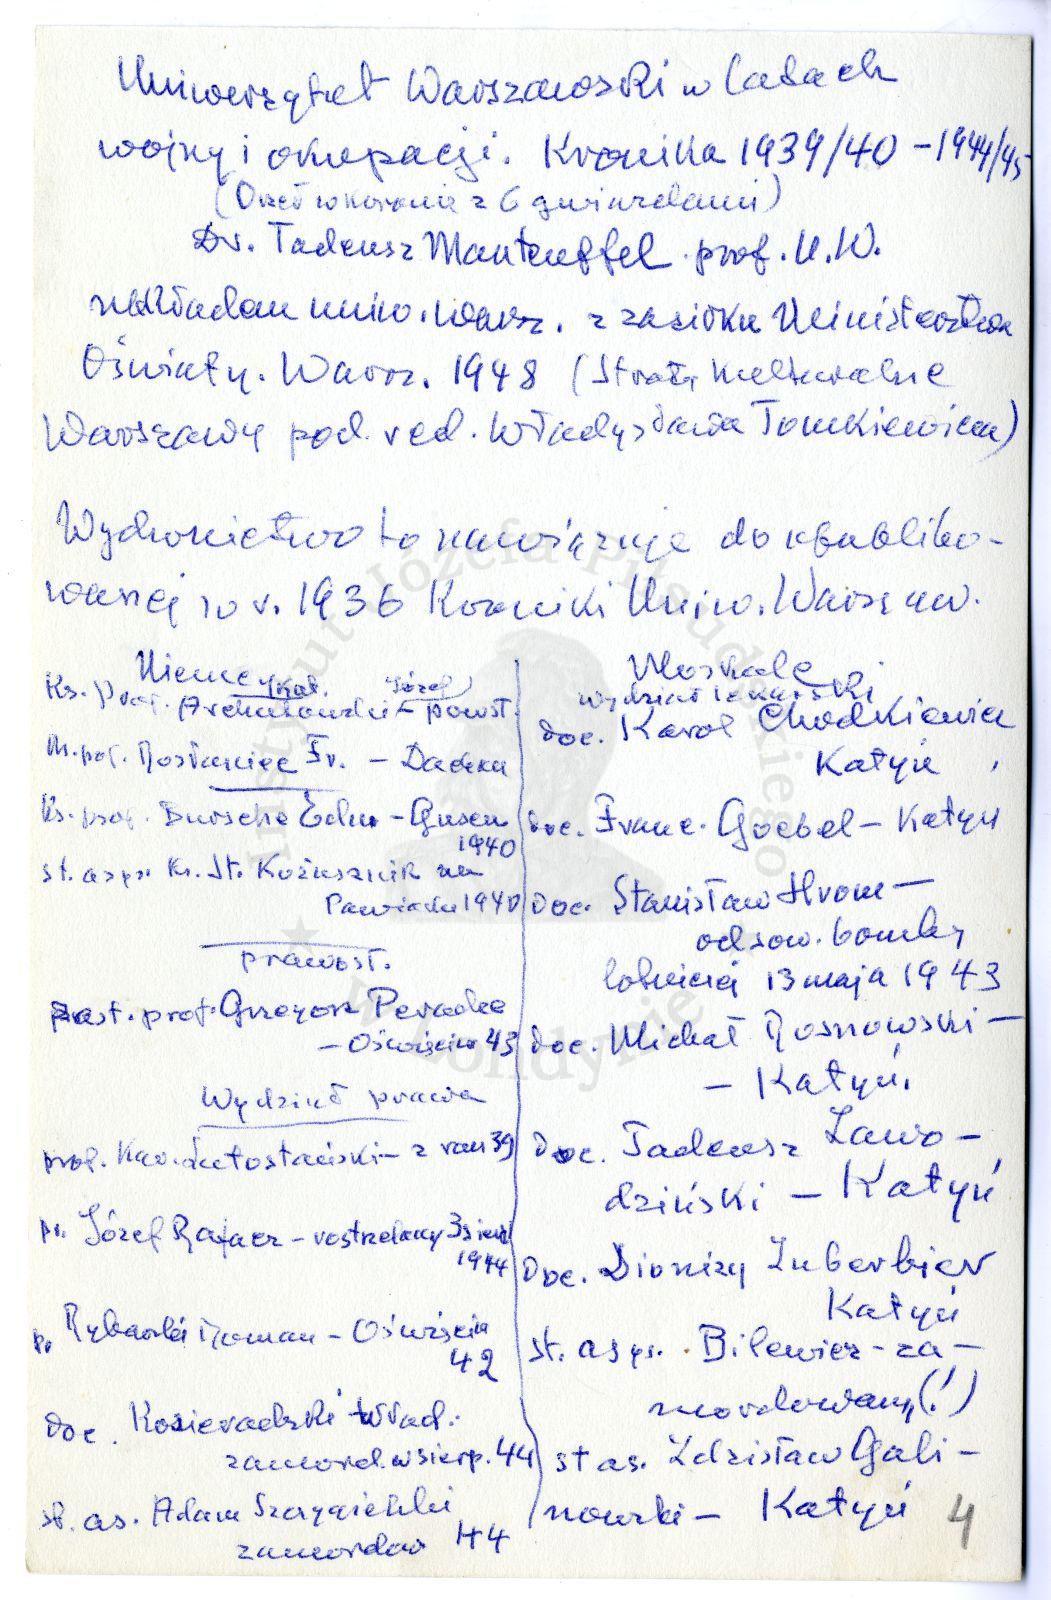 Uniwersytet Warszawski w latach
wojny i okupacji. Kronika 1939/40 – 1944/45
(Orzeł w koronie z 6 gwiazdami)
Dr. Tadeusz Manteuffel prof. U.W.
nakładem uniw. warsz. z zasiłku Ministerstwa
Oświaty. Warsz. 1948 (Straty kulturalne
Warszawy pod red. Władysława Tomkiewicza)
Wydawnictwo to nawiązuje do opubliko-
wanej w r. 1936 Kroniki Uniw. Warszaw.
Niemcy
kat. Józef
Ks. prof. Archutowski – powst.
Ks. prof. Rosłaniec Fr. – Dachau
Ks. prof. Bursche Edm – Gusen
1940
st. asys. Ks. St. Kożusznik na
Pawiaku 1940
prawosł.
zast. prof. Grzegorz Peradze
– Oświęcim 43
Wydział prawa
prof. Kar. Lutostański – z ran 39
pr. Józef Rafacz – rostrzelany 3 sierp
1944
pr. Rybarski Roman – Oświęcim
42
Doc. Kosieradzki Wład.
zamord. w sierp. 44
st. as. Adam Szczygielski
zamordow 44
Moskale
wydział lekarski
doc. Karol Chodkiewicz
Katyń
doc. Franc. Goebel – Katyń
Doc. Stanisław Hrom –
od sow. bomby
lotniczej 13 maja 1943
doc. Michał Rosnowski –
– Katyń.
Doc. Tadeusz Zawo-
dziński – Katyń
Doc. Dionizy Zuberbier
Katyń
st. asys. Bilewicz – za-
mordowany (!)
st as. Zdzisław Gali-
nowski – Katyń
4
Instytut Józefa Piłsudskiego
w Londynie